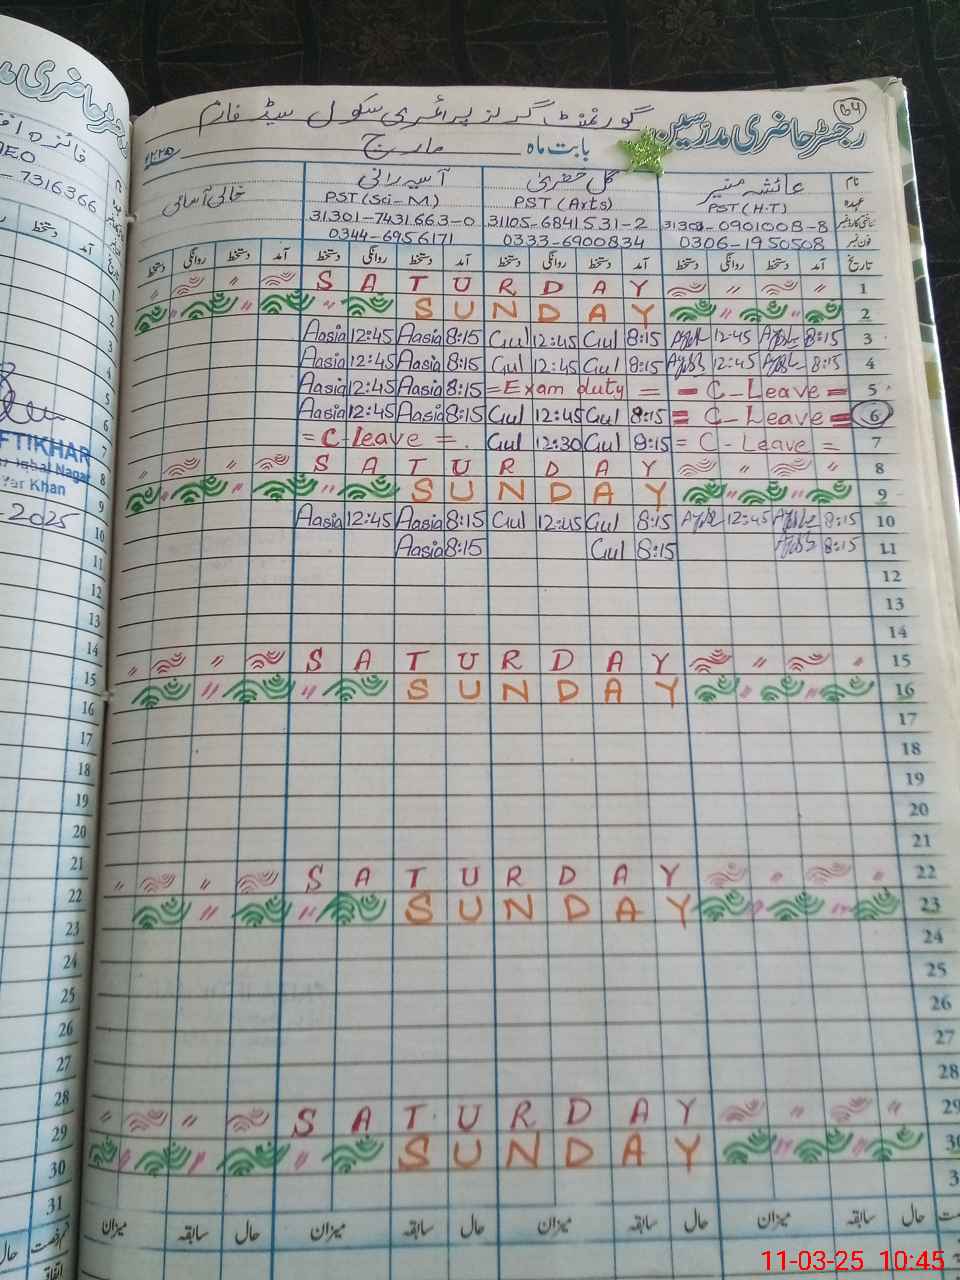 64
رجسٹر حاضری مدرسین گورنمنٹ گرلز پرائمری سکول سیڈ فارم
بابت ماہ مارچ
نام عائشہ منیر گل خضریٰ آسیہ رانی خالی آسامی
عہدہ PST (H.T) PST (Arts) PST (Sci-M)
شناختی کارڈ نمبر 0901008-8 31105-6841531-2 31301-7431663-0
فون نمبر 0306-1950508 0333-6900834 0344-6956171
تاریخ آمد دستخط روانگی دستخط آمد دستخط روانگی دستخط آمد دستخط روانگی دستخط آمد دستخط روانگی دستخط
S A T U R D A Y 1
S U N D A Y 2
Aasia 12:45 Aasia 8:15 Gul 12:45 Gul 8:15 12:45 8:15 3
Aasia 12:45 Aasia 8:15 Gul 12:45 Gul 8:15 12:45 8:15 4
Aasia 12:45 Aasia 8:15 = Exam duty = = C-Leave = 5
Aasia 12:45 Aasia 8:15 Gul 12:45 Gul 8:15 = C-Leave = 6
= C-leave = Gul 12:30 Gul 8:15 = C-Leave = 7
S A T U R D A Y 8
S U N D A Y 9
Aasia 12:45 Aasia 8:15 Gul 12:45 Gul 8:15 12:45 8:15 10
Aasia 8:15 Gul 8:15 8:15 11
12
13
14
S A T U R D A Y 15
S U N D A Y 16
17
18
19
20
21
S A T U R D A Y 22
S U N D A Y 23
24
25
26
27
28
S A T U R D A Y 29
S U N D A Y 30
حال سابقہ میزان حال سابقہ میزان حال سابقہ میزان حال سابقہ میزان
7316366
دستخط آمد تاریخ
1
2
3
4
5
6
7
8
9
10
11
12
13
14
15
16
17
18
19
20
21
22
23
24
25
26
27
28
29
30
31
حال
FTIKHAR
Iqbal Nagar
Yar Khan
-2025
11-03-25 10:45